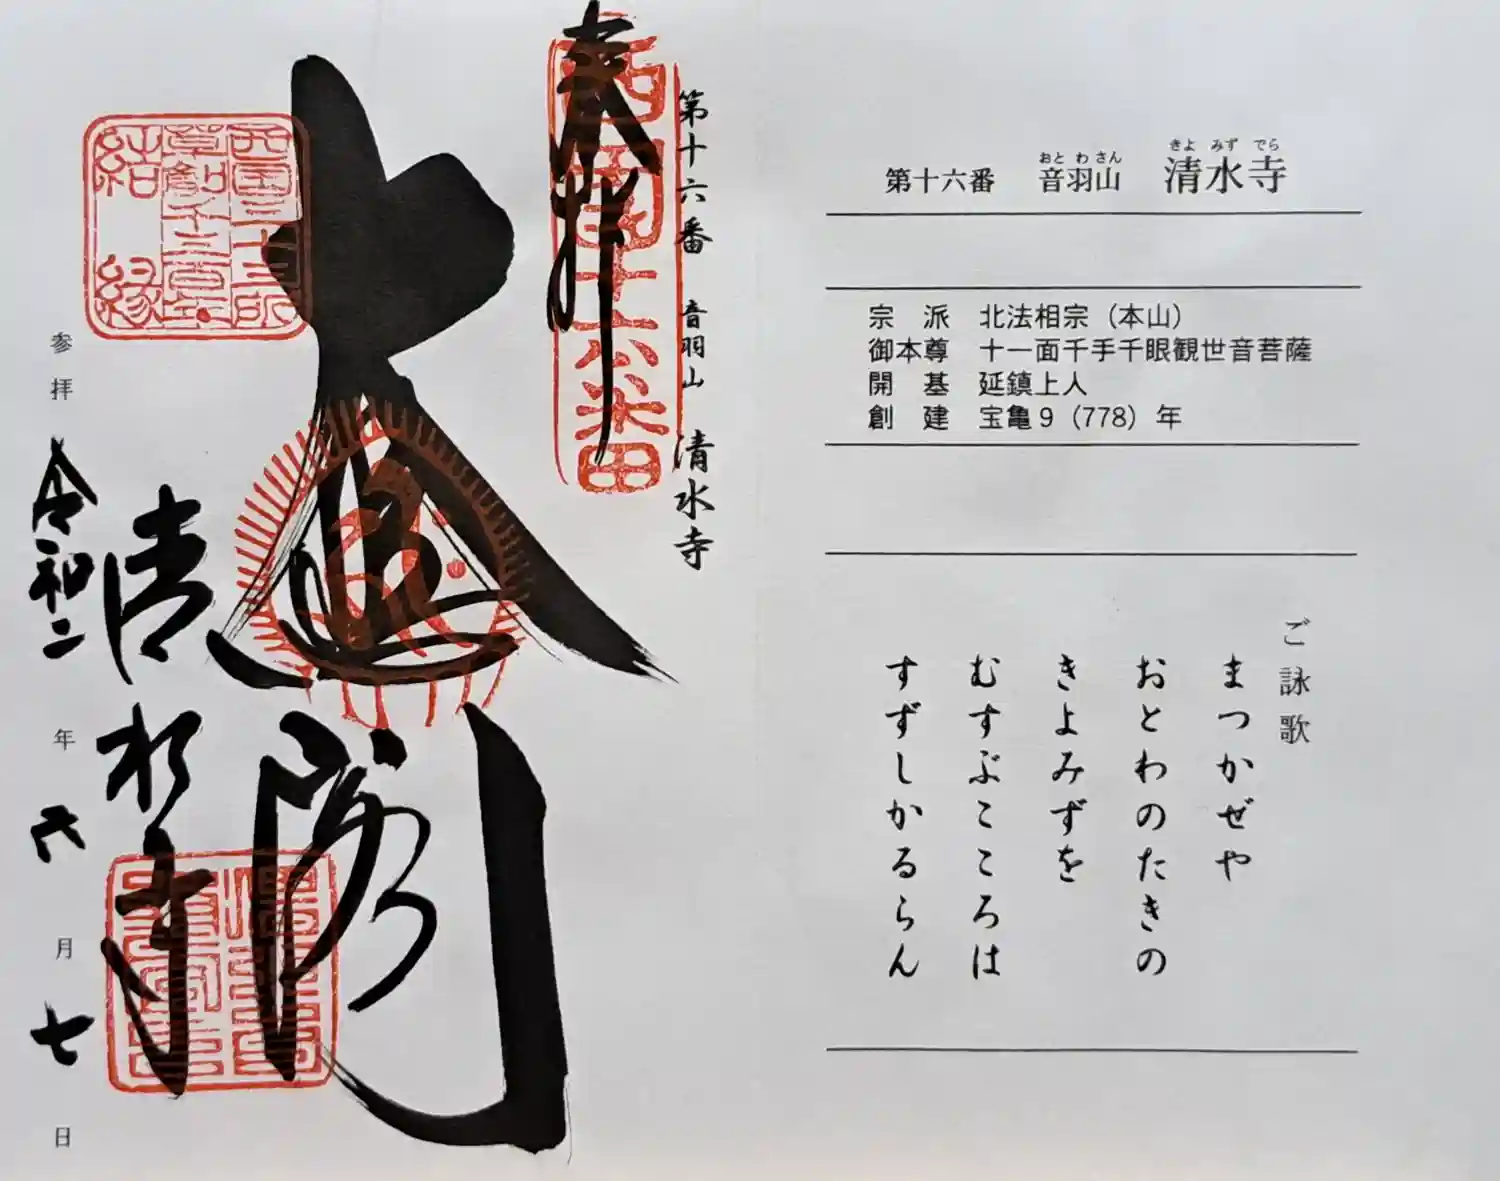 第十六番 音羽山 清水寺
宗 派 北法相宗（本山）
御本尊 十一面千手千眼観世音菩薩
開 基 延鎮上人
創 建 宝亀9（778）年
ご詠歌
まつかぜや
おとわのたきの
きよみずを
むすぶこころは
すずしかるらん
第十六番 音羽山 清水寺
奉拝
西国十六番
大悲閣
西国三十三所
草創千三百年
結縁
清水寺
参拝 令和二年六月七日